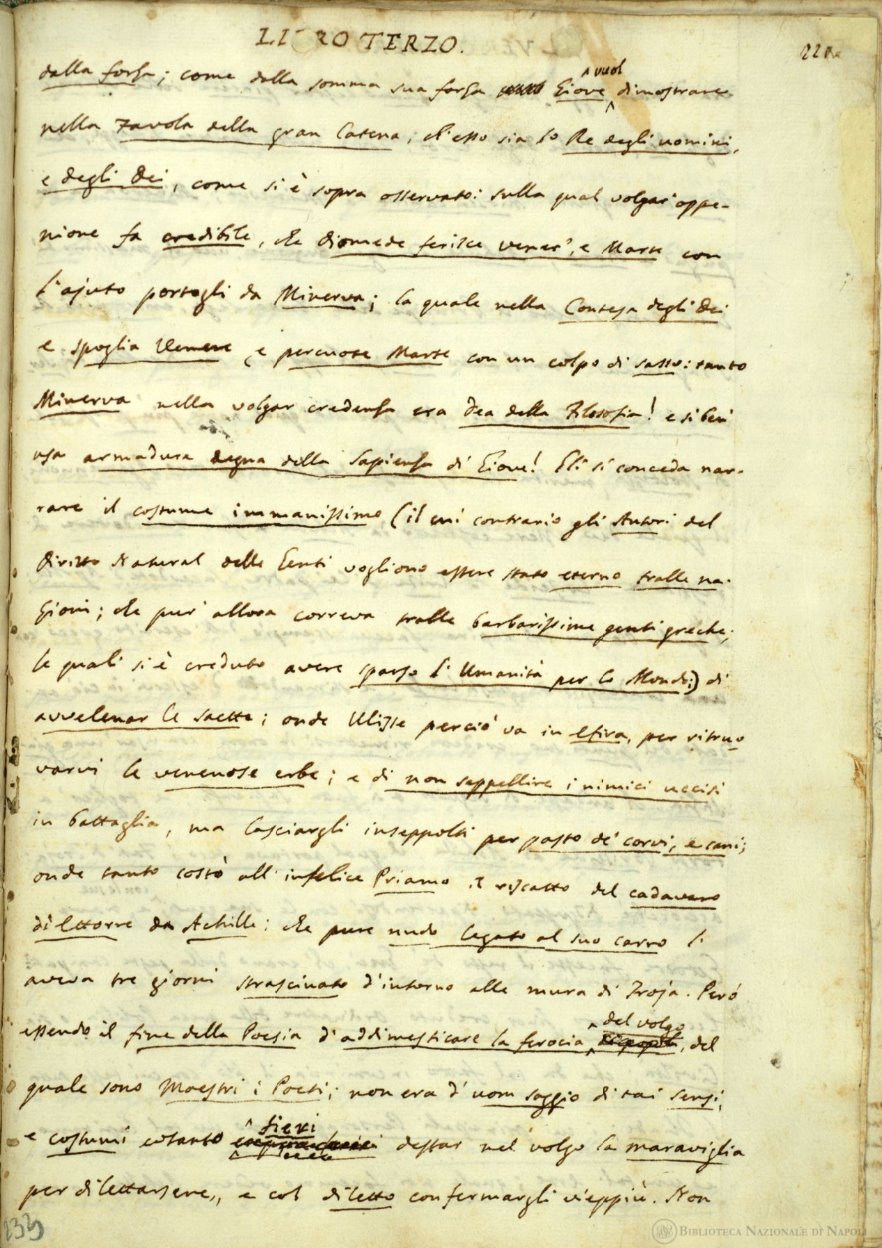 LIBRO TERZO.
221
dalla forza; come dalla somma sua forza Giove vuol dimostrare
nella Favola della gran Catena, ch'esso sia lo Re degli uomini,
e degli Dei, come si è sopra osservato: sulla qual volgar' oppe-
nione fa credibile, che Diomede ferisce Vener', e Marte con
l'ajuto portogli da Minerva; la quale nella Contesa degli Dei
e spoglia Venere, e percuote Marte con un colpo di sasso: tanto
Minerva nella volgar credenza era Dea della Filosofia! e sì ben'
usa armadura degna della Sapienza di Giove! Gli si conceda nar-
rare il costume immanissimo (il cui contrario gli Autori del
Diritto Natural delle Genti vogliono essere stato eterno tralle na-
zioni; che pur' allora correva tralle barbarissime genti greche,
le quali si è creduto avere sparso l'Umanità per lo Mondo;) di
avvelenar le saette; onde Ulisse perciò va in Efira, per ritruo-
varvi le venenose erbe; e di non seppellire i nimici uccisi
in battaglia, ma lasciargli inseppolti per pasto de' corvi, e cani;
onde tanto costò all'infelice Priamo il riscatto del cadavero
di Ettorre da Achille; che pure nudo legato al suo carro l'
aveva tre giorni strascinato d'intorno alle mura di Troja. Però
essendo il fine della Poesia d'addimesticare la ferocia del volgo, del
quale sono Maestri i Poeti; non era d'uom saggio di tai sensi,
e costumi cotanto fieri destar nel volgo la maraviglia
per dilettarsene, e col diletto confermargli vieppiù. Non
233
BIBLIOTECA NAZIONALE DI NAPOLI